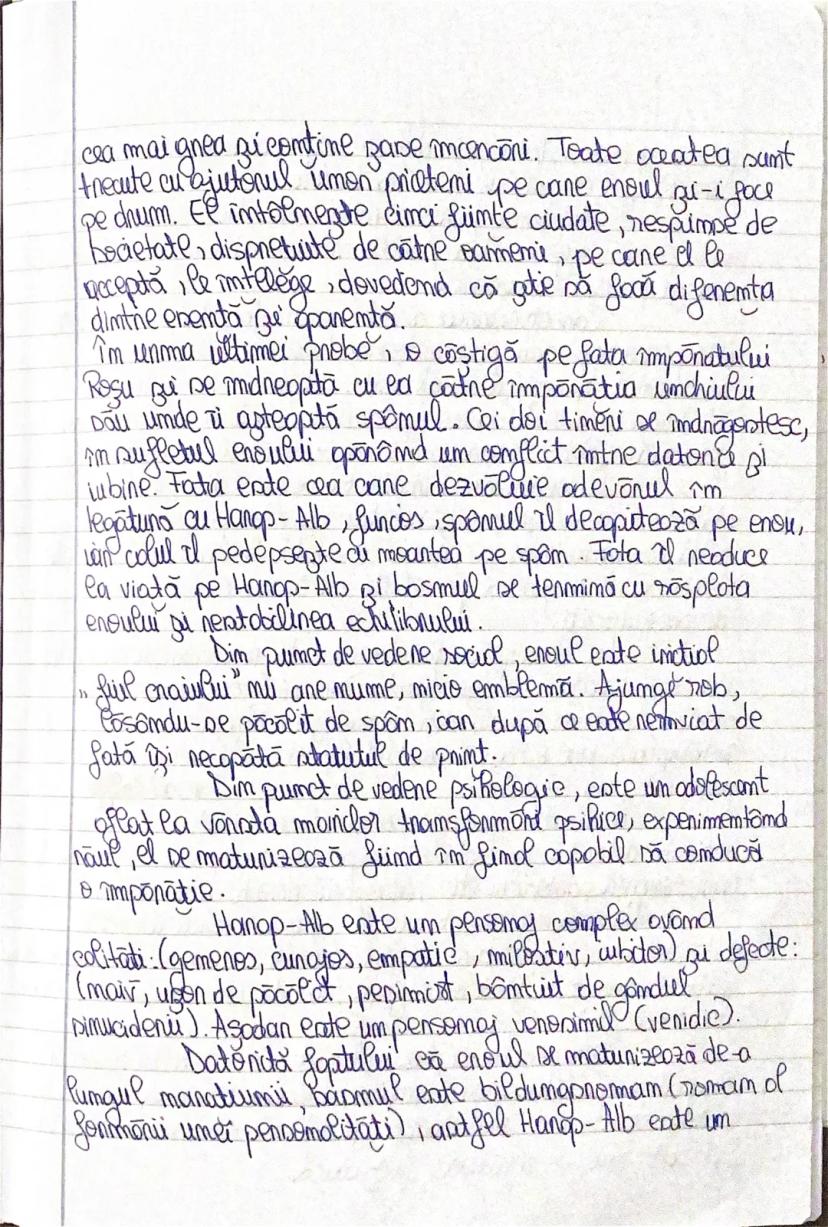 cea mai grea și conține șase încercări. Toate acestea sunt
trecute cu ajutorul unor prieteni pe care eroul și-i face
pe drum. El întâlnește cinci ființe ciudate, respinse de
societate, disprețuite de către oameni, pe care el le
acceptă, le înțelege, dovedend că știe să facă diferența
dintre esență și aparență.
În urma ultimei probe, o câștigă pe fata împăratului
Roșu și se îndreaptă cu ea către împărăția unchiului
său unde îi așteaptă spânul. Cei doi tineri se îndrăgostesc,
în sufletul eroului apărând un conflict între datorie și
iubire. Fata este cea care dezvăluie adevărul în
legătură cu Harap-Alb, furios, spânul îl decapitează pe erou,
iar calul îl pedepsește cu moartea pe spân. Fata îl readuce
la viață pe Harap-Alb și basmul se termină cu răsplata
eroului și restabilirea echilibrului.
Din punct de vedere social, eroul este inițial
„fiul craiului" nu are nume, nicio emblemă. Ajunge rob,
lăsându-se păcălit de spân, iar după ce este reînviat de
fată își recapătă statutul de prinț.
Din punct de vedere psihologic, este un adolescent
aflat la vârsta marilor transformări psihice, experimentând
răul, el se maturizează fiind în final capabil să conducă
o împărăție.
Harap-Alb este un personaj complex având
calități: (generos, curajos, empatic, milostiv, iubitor) și defecte:
(naiv, ușor de păcălit, pesimist, bântuit de gândul
sinuciderii). Așadar este un personaj verosimil (veridic).
Datorită faptului că eroul se maturizează de-a
lungul narațiunii, basmul este bildungsroman (roman al
formării unei personalități), astfel Harap-Alb este un